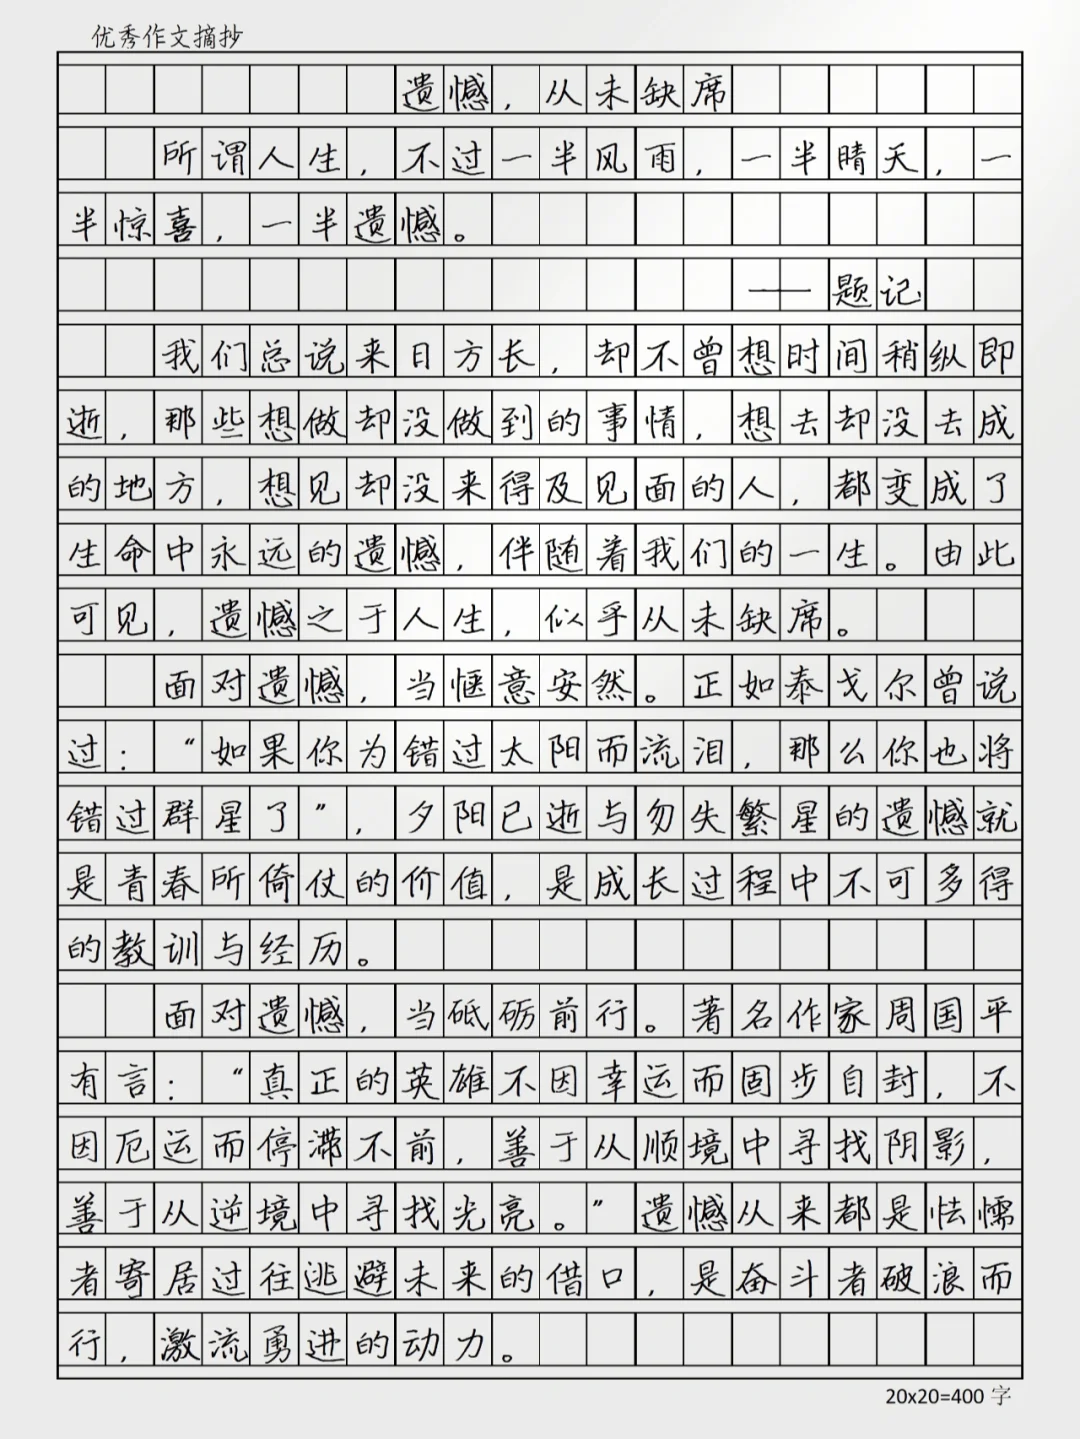 优秀作文摘抄
遗憾，从未缺席
所谓人生，不过一半风雨，一半晴天，一
半惊喜，一半遗憾。
——题记
我们总说来日方长，却不曾想时间稍纵即
逝，那些想做却没做到的事情，想去却没去成
的地方，想见却没来得及见面的人，都变成了
生命中永远的遗憾，伴随着我们的一生。由此
可见，遗憾之于人生，似乎从未缺席。
面对遗憾，当惬意安然。正如泰戈尔曾说
过：“如果你为错过太阳而流泪，那么你也将
错过群星了”，夕阳已逝与勿失繁星的遗憾就
是青春所倚仗的价值，是成长过程中不可多得
的教训与经历。
面对遗憾，当砥砺前行。著名作家周国平
有言：“真正的英雄不因幸运而固步自封，不
因厄运而停滞不前，善于从顺境中寻找阴影，
善于从逆境中寻找光亮。”遗憾从来都是怯懦
者寄居过往逃避未来的借口，是奋斗者破浪而
行，激流勇进的动力。
20x20=400 字